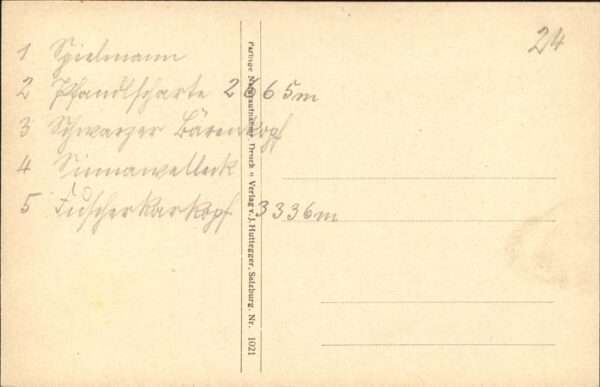 24
1 Spielmann
2 Pfandlscharte 2665m
3 Schwarzer Bärenkopf
4 Sinnawelleck
5 Fuscherkarkopf 3336m
Druck u Verlag v. J. Huttegger, Salzburg. Nr. 1021